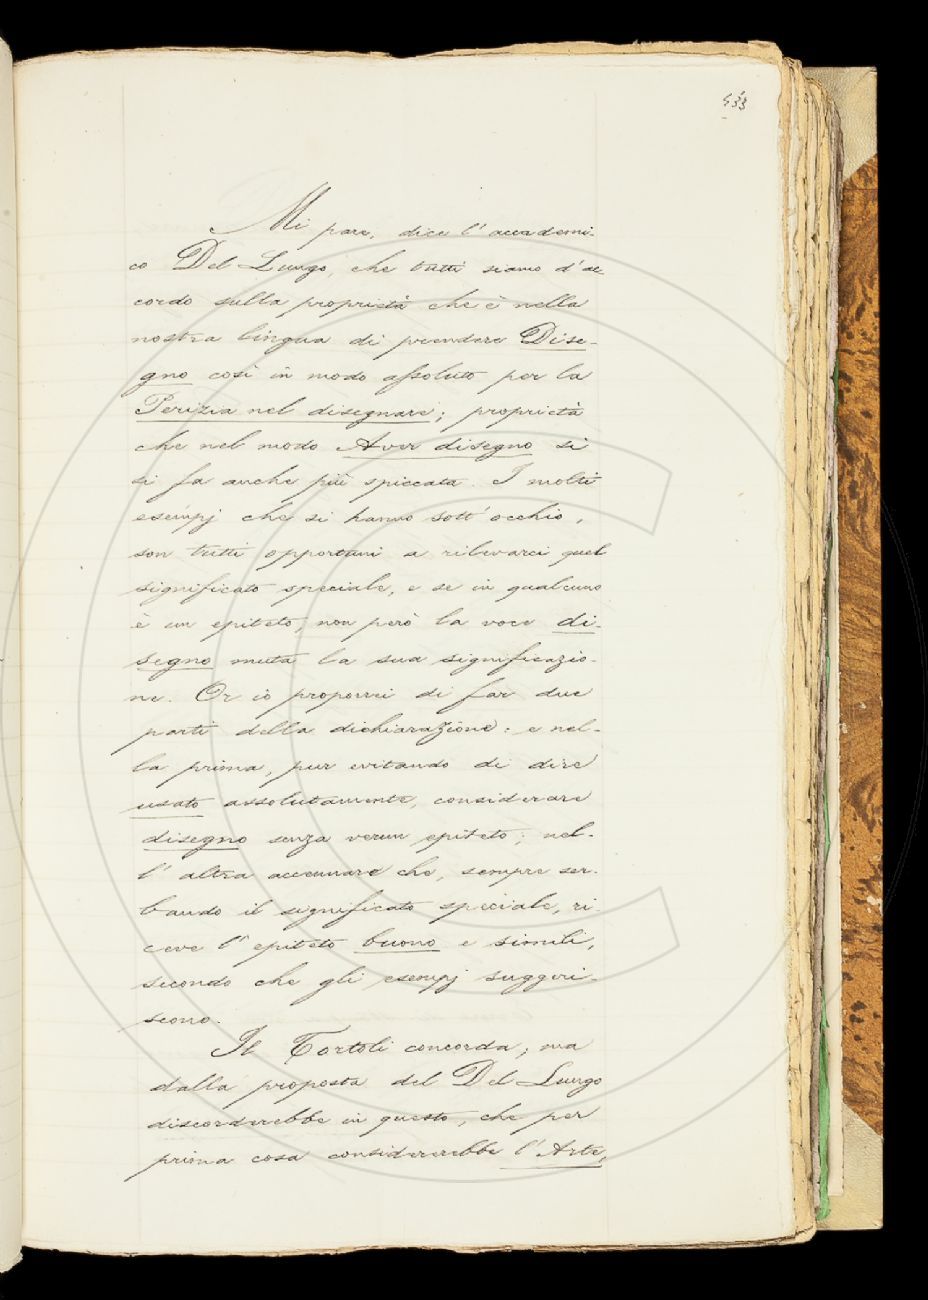 533
Mi pare, dice l'accademi-
co Del Lungo, che tutti siamo d'ac-
cordo sulla proprietà che è nella
nostra lingua di prendere Dise-
gno così in modo assoluto per la
Perizia nel disegnare; proprietà
che nel modo Aver disegno si
si fa anche più spiccata. I molti
esempj che si hanno sott'occhio,
son tutti opportuni a rilevarci quel
significato speciale, e se in qualcuno
è un epiteto, non però la voce di-
segno muta la sua significazio-
ne. Or io proporrei di far due
parti della dichiarazione: e nel-
la prima, pur evitando di dire
usato assolutamente, considerare
disegno senza verun epiteto; nel-
l'altra accennare che, sempre ser-
bando il significato speciale, ri-
ceve l'epiteto buono e simili,
secondo che gli esempj suggeri-
scono.
Il Tortoli concorda; ma
dalla proposta del Del Lungo
discorderebbe in questo, che per
prima cosa considererebbe l'Arte,